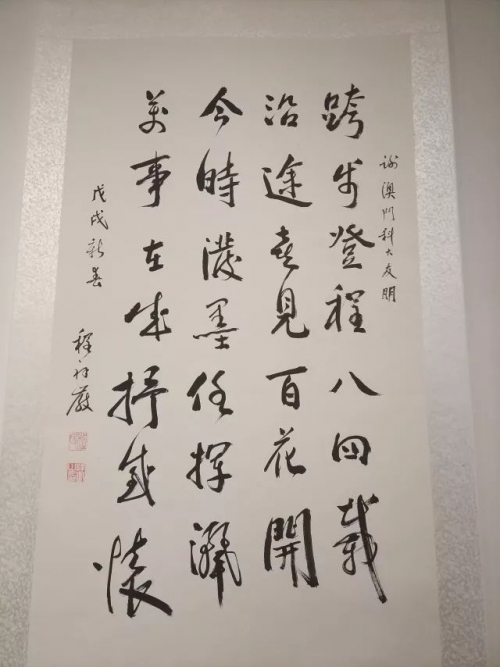 謝澳門科大友朋
跨步登程八四載
沿途喜見百花開
今時潑墨任揮灑
萬事在抒感懷
戊戌新春
程祥徽